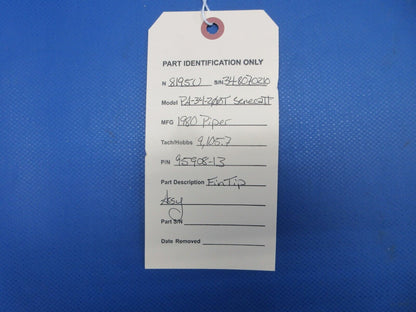 PART IDENTIFICATION ONLY
N 8195U S/N 34-8070210
Model PA-34-200T Seneca II
MFG 1980 Piper
Tach/Hobbs 9,105.7
P/N 95908-13
Part Description Fin Tip
Assy
Part S/N
Date Removed